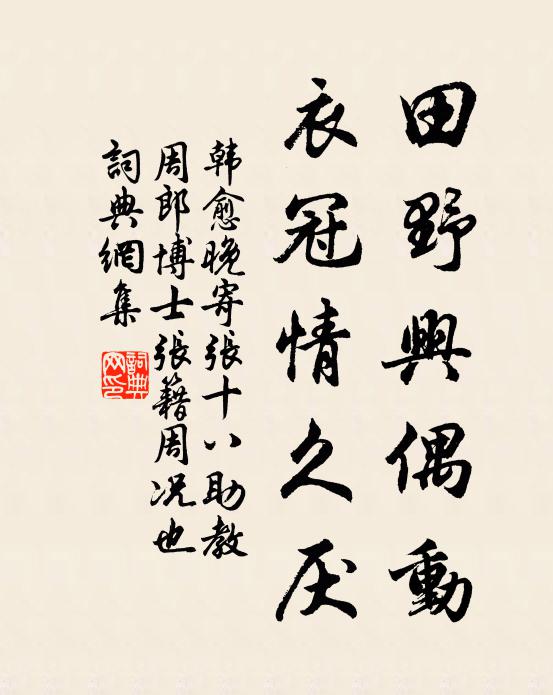 田野興偶動
衣冠情久厌
韩愈晚寄張十八助教
周郎博士張籍周况也
詞典網集
詞典网印